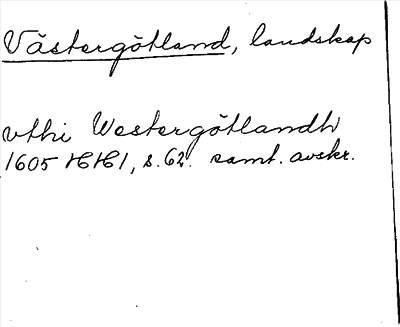 Västergötland, landskap
vthi Westergötlandh
1605 HH 1, s. 62. samt. avskr.